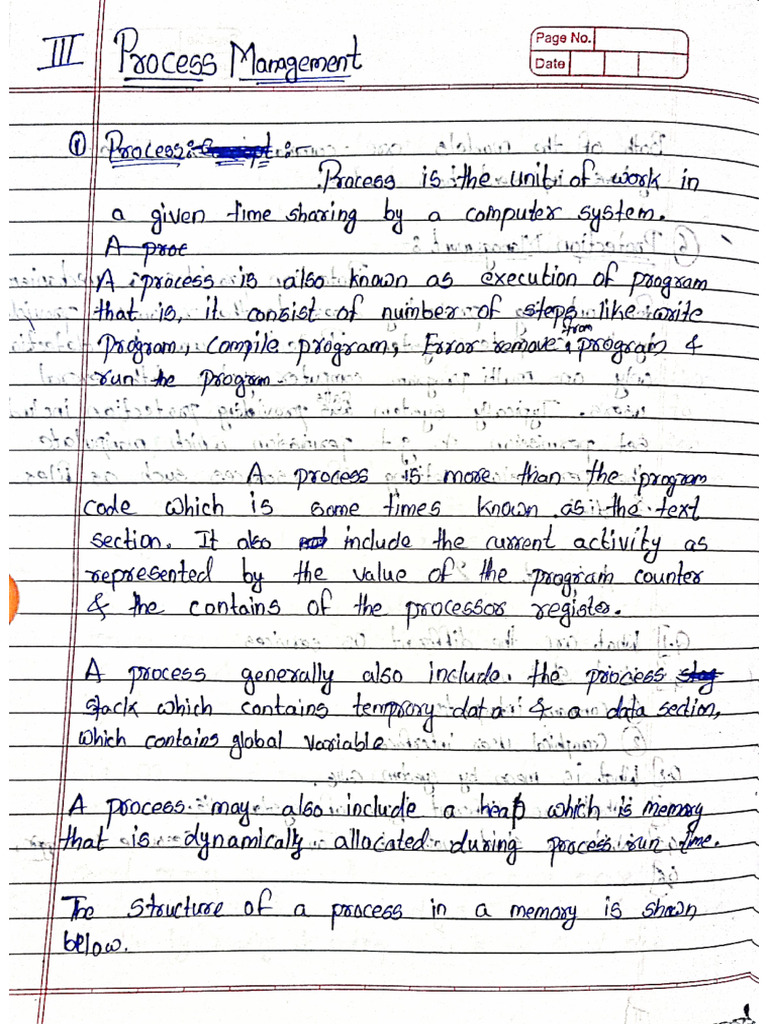 III Process Management
Page No.
Date
① Process :-
Process is the unit of work in
a given time sharing by a computer system.
A process is also known as execution of program
that is, it consist of number of steps like write
Program, Compile program, Error remove from program &
run the program
A process is more than the program
code which is some times known as the text
section. It also include the current activity as
represented by the value of the program counter
& the contains of the processor register.
A process generally also include the process
stack which contains temprory data & a data section,
which contains global variable
A process may also include a heap which is memory
that is dynamically allocated during process run time.
The structure of a process in a memory is shown
below.